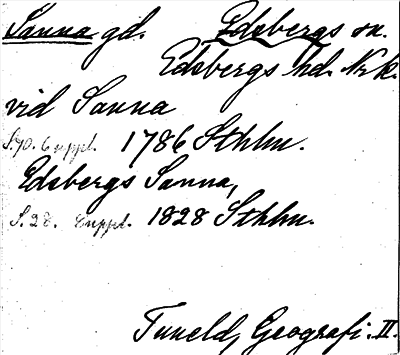 Sanna gd. Edsbergs sn.
Edsbergs hd. Nrk.
vid Sanna
S. 70. 6 uppl. 1786 Sthlm.
Edsbergs Sanna,
S. 28. uppl. 1828 Sthlm.
Tuneld, Geografi. II.